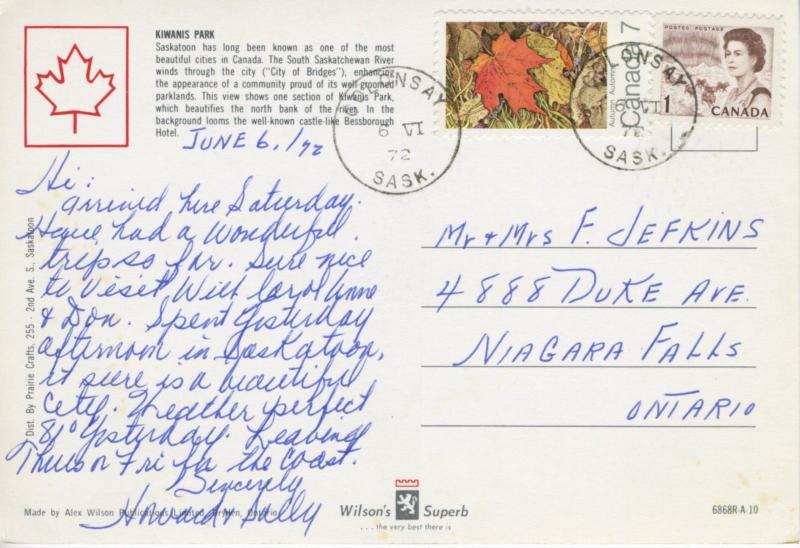 KIWANIS PARK
Saskatoon has long been known as one of the most
beautiful cities in Canada. The South Saskatchewan River
winds through the city ("City of Bridges"), enhancing
the appearance of a community proud of its well-groomed
parklands. This view shows one section of Kiwanis Park,
which beautifies the north bank of the river. In the
background looms the well-known castle-like Bessborough
Hotel.
JUNE 6, /72
Hi:
arrived here Saturday.
Have had a wonderful
trip so far. Sure nice
to visit with Carol Anne
& Don. Spent yesterday
afternoon in Saskatoon,
it sure is a beautiful
City. Weather perfect
81° yesterday. Leaving
Thurs or Fri for the Coast.
Sincerely
Howard & Sally
Dist. By Prairie Crafts, 255 - 2nd Ave. S., Saskatoon
COLONSAY
6 VI
72
SASK.
Autumn Automne
Canada 7
COLONSAY
6 VI
72
SASK.
POSTES POSTAGE
1
CANADA
Mr & Mrs F. JEFKINS
4888 DUKE AVE.
NIAGARA FALLS
ONTARIO
Made by Alex Wilson Publications Limited, Dryden, Ontario
Wilson's Superb
... the very best there is
6868R-A-10